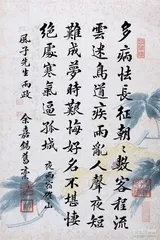 多病怯長征朝朝數客程流
雲迷鳥道疾雨亂人聲夜短
難成夢時艱悔好名不堪悽
絕處寒氣逼孤城 夜雨宿黎山
風子先生兩政 余嘉錫舊章